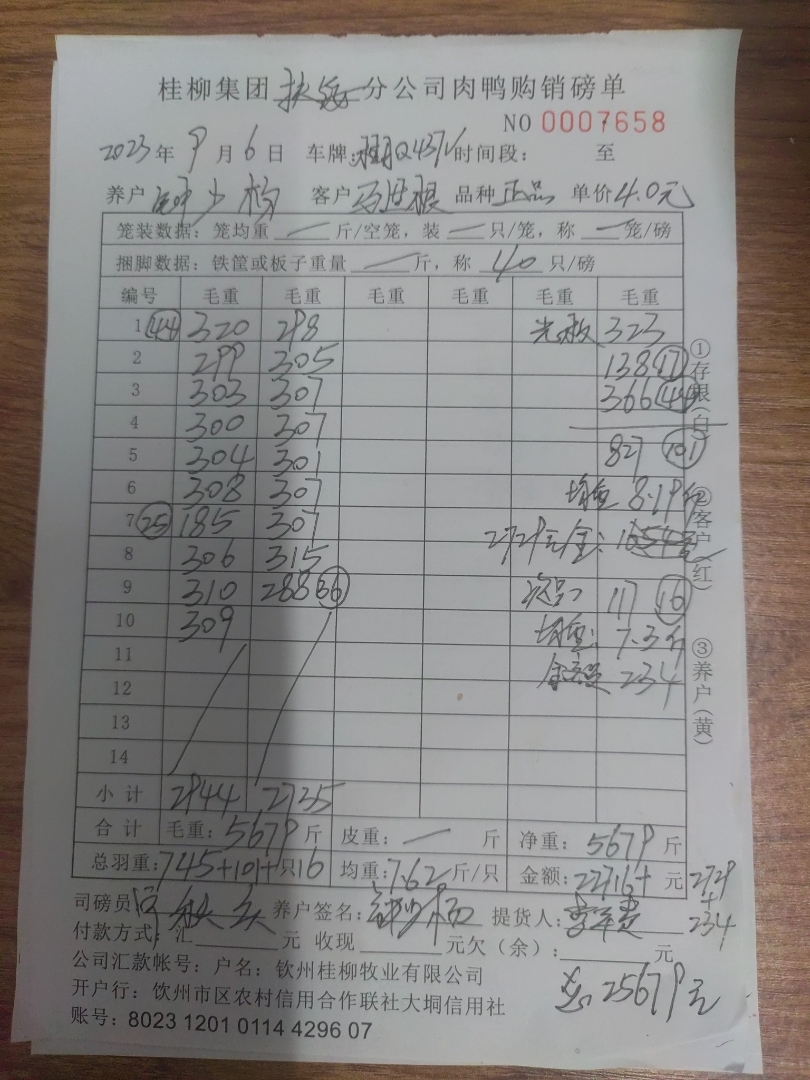 桂柳集团 分公司肉鸭购销磅单
NO 0007658
2023年 9月6日 车牌: Q437V 时间段: 至
养户 钟少杨 客户 品种 正品 单价 4.0元
笼装数据: 笼均重 — 斤/空笼, 装 — 只/笼, 称 — 笼/磅
捆脚数据: 铁筐或板子重量 — 斤, 称 40 只/磅
编号 毛重 毛重 毛重 毛重 毛重 毛重
1 (44) 320 298 光板 323
2 299 305 138 (17)
3 303 307 366 (44)
4 300 307
5 304 301 827 (101)
6 308 307 均重 8.19斤
7 (25) 185 307 2729元 金:
8 306 315
9 310 288 (36) 次品 117 (16)
10 309 均重: 7.3斤
11 金额 234
12
13
14
小计 2944 2735
合计 毛重: 5679 斤 皮重: — 斤 净重: 5679 斤
总羽重: 745+101+只16 均重: 7.62 斤/只 金额: 22716+ 元 2729
+
234
司磅员 养户签名: 钟少杨 提货人:
付款方式: 汇 元 收现 元欠(余): 元
公司汇款帐号: 户名: 钦州桂柳牧业有限公司
开户行: 钦州市区农村信用合作联社大垌信用社
25679元
账号: 8023 1201 0114 4296 07
①存根(白)
②客户(红)
③养户(黄)